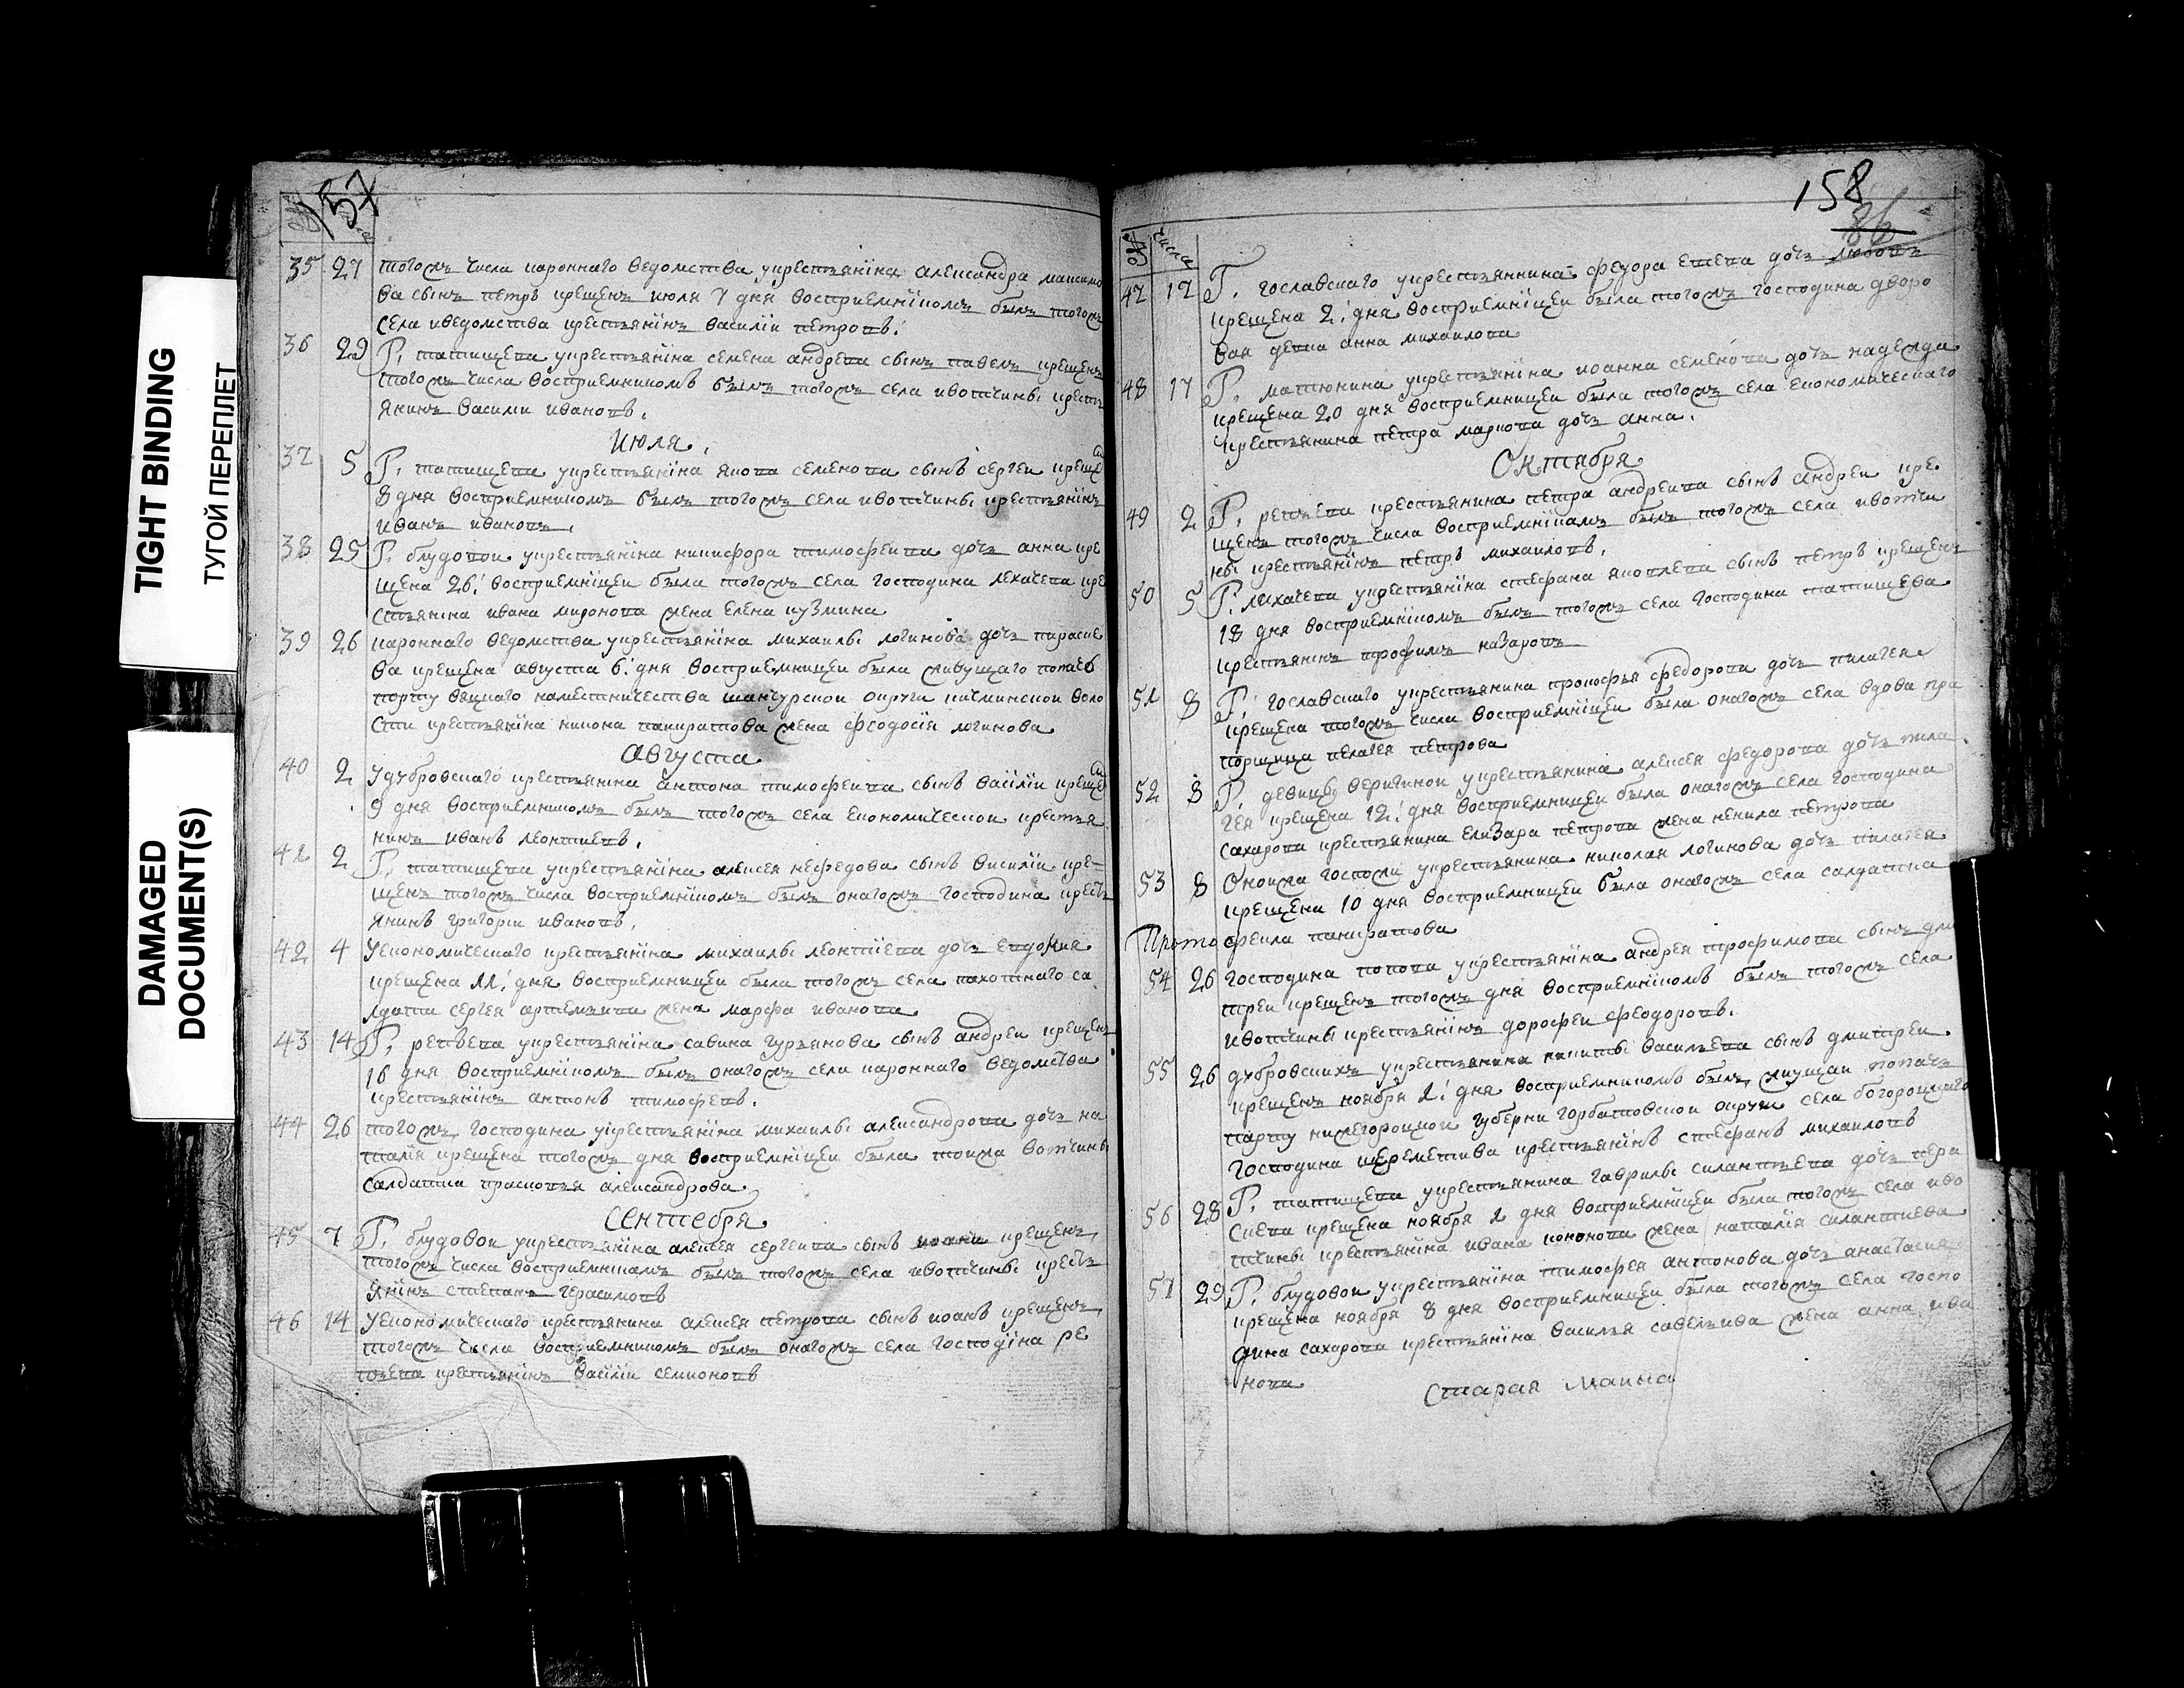 TIGHT BINDING
ТУГОЙ ПЕРЕПЛЕТ
DAMAGED
DOCUMENT(S)
157
35 27 тогожъ числа короннаго ведомства укрестьянина александра максимо
ва сынъ петръ крещенъ июля 7 дня восприемникомъ былъ тогожъ
села иведомства крестьянинъ василiи петровъ.
36 29 Г. татищева укрестьянiна семена андрева сынъ павелъ крещенъ
тогожъ числа восприемникомъ былъ тогожъ села ивотчины кресть
янинъ васили ивановъ.
Июля.
37 5 Г. татищева укрестьянiна якова семенова сынъ сергеи креще
8 дня восприемникомъ былъ тогожъ села ивотчины крестьянiнъ
иванъ ивановъ.
38 25 Г. блудовои укрестьянiна никифора тимофеива дочь анна кре
щена 26: восприемнiцеи была тогожъ села господина лехачева кре
стьянина ивана миронова жена елена кузмина
39 26 короннаго ведомства укрестьянiна михаилы логинова дочь параске
ва крещена августа 6: дня восприемницеи была живущаго попачь
порту вяцкаго наместничества шанчурскои округи кичминскои воло
сти крестьянiна никона панкратова жена феодосiя логинова
Августа
40 2 Удубровскаго крестьянiна антона тимофеива сынъ васiлiи креще
9 дня восприемникомъ былъ тогожъ села економическои крестья
нинъ иванъ леонтиевъ.
41 2 Г. татищева укрестьянiна алексея нефедова сынъ василiи кре-
щенъ тогожъ числа восприемнiкомъ былъ онагожъ господина кресть
янинъ григорiи ивановъ.
42 4 Уекономическаго крестьянiна михаилы леонтiева дочь евдокия
крещена 11: дня восприемницеи была тогожъ села пахотнаго са
лдата сергея артемьива жена марфа иванова
43 14 Г. ретьева укрестьянiна савина гурьянова сынъ андреи крещенъ
16 дня восприемнiкомъ былъ онагожъ села короннаго ведомства
крестьянiнъ антонъ тимофевъ.
44 26 тогожъ господина укрестьянiна михаилы александрова дочь на
талiя крещена тогожъ дня восприемнiцеи была тоижа вотчины
салдатка прасковья александрова
Сентебря
45 7 Г. блудовои укрестьянiна алексея сергеива сынъ иоанн крещенъ
тогожъ числа восприемнiкамъ былъ тогожъ села ивотчины кресть
янiнъ степанъ герасимовъ
46 14 Уекономическаго крестьянина алексея петрова сынъ иоанъ крещенъ
тогожъ числа восприемникомъ былъ онагожъ села господiна ре
тьева крестьянiнъ васiлiи семионовъ
158
86
№ числа
47 12 Г. гославскаго укрестьяннина федора евсева дочь любовь
крещена 2: дня восприемнiцеи была тогожъ господина дворо
вая девка анна михаилова
48 17 Г. матюнина укрестьянiна иоанна семенова дочь надежда
крещена 20 дня восприемницеи была тогожъ села економическаго
крестьянина петра маркова дочь анна.
Октября
49 2 Г. ретьева крестьянина петра андреива сынъ андреи кре
щенъ тогожъ числа восприемнiкамъ былъ тогожъ села ивотчи
ны крестьянiнъ петръ михаиловъ.
50 5 Г. лихачева укрестьянiна стефана яковлева сынъ петръ крещенъ
18 дня восприемнiкомъ былъ тогожъ села господина татищева
крестьянинъ трофимъ назаровъ
51 8 Г. гославскаго укрестьянина прокофья федорова дочь пилагея
крещена тогожъ числа восприемнiцеи была онагожъ села вдова пра
порщица пелагея петрова
52 8 Г. девицы веригинои укрестьянина алексея федорова дочь пила
гея крещена 12: дня восприемницеи была онагожъ села господина
сахарова крестьянина елизара петрова жена ненила петрова
53 8 Оноижа госпожи укрестьянина николая логинова дочь пилагея
крещена 10 дня восприемницеи была онагожъ села салдатка
феила панкратова
Прото
54 26 господина попова укрестьянiна андрея трофимова сынъ дми
треи крещенъ тогожъ дня восприемнiкомъ былъ тогожъ села
ивотчины крестьянiнъ дорофеи феодоровъ.
55 26 дубровскихъ укрестьянина никиты васильева сынъ дмитреи
крещенъ ноября 2: дня восприемникомъ былъ жиущаи попачь
парту нижегороцкои губерни горбатовскои округи села богороцкаго
господина шереметива крестьянiнъ стефанъ михаиловъ
56 28 Г. татищева укрестьянина гаврилы силантьева дочь пера
скева крещена ноября 2 дня восприемнiцеи была тогожъ села иво
тчины крестьянiна ивана кононова жена наталiя силантиева
57 29 Г. блудовои укрестьянiна тимофея антонова дочь анастасия
крещена ноября 8 дня восприемницеи была тогожъ села госпо
дина сахарова крестьянiна василья савельива жена анна ива
нова
Старая Маина